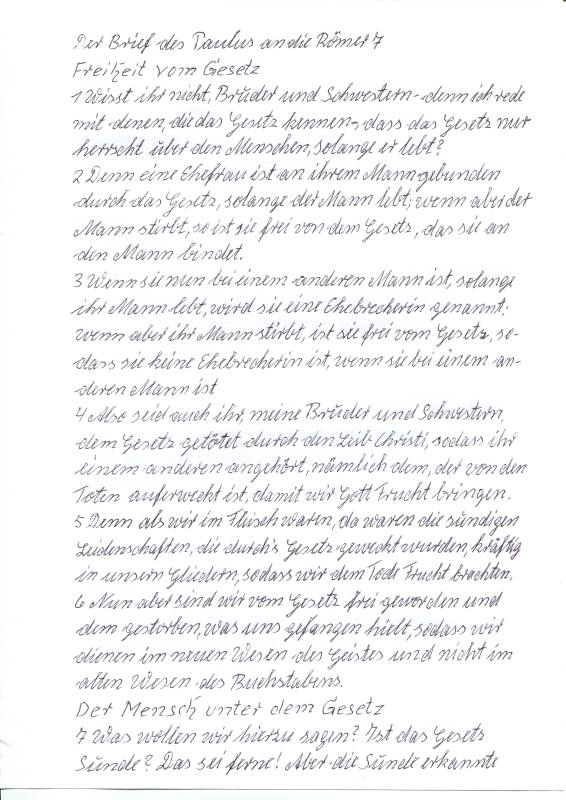 Der Brief des Paulus an die Römer 7
Freiheit vom Gesetz
1 Wisst ihr nicht, Brüder und Schwestern - denn ich rede
mit denen, die das Gesetz kennen -, dass das Gesetz nur
herrscht über den Menschen, solange er lebt?
2 Denn eine Ehefrau ist an ihrem Mann gebunden
durch das Gesetz, solange der Mann lebt; wenn aber der
Mann stirbt, so ist sie frei von dem Gesetz, das sie an
den Mann bindet.
3 Wenn sie nun bei einem anderen Mann ist, solange
ihr Mann lebt, wird sie eine Ehebrecherin genannt;
wenn aber ihr Mann stirbt, ist sie frei vom Gesetz, so-
dass sie keine Ehebrecherin ist, wenn sie bei einem an-
deren Mann ist
4 Also seid auch ihr, meine Brüder und Schwestern,
dem Gesetz getötet durch den Leib Christi, sodass ihr
einem anderen angehört, nämlich dem, der von den
Toten auferweckt ist, damit wir Gott Frucht bringen.
5 Denn als wir im Fleisch waren, da waren die sündigen
Leidenschaften, die durch's Gesetz geweckt wurden, kräftig
in unsern Gliedern, sodass wir dem Tode Frucht brachten.
6 Nun aber sind wir vom Gesetz frei geworden und
dem gestorben, was uns gefangen hielt, sodass wir
dienen im neuen Wesen des Geistes und nicht im
alten Wesen des Buchstabens.
Der Mensch unter dem Gesetz
7 Was wollen wir hierzu sagen? Ist das Gesetz
Sünde? Das sei ferne! Aber die Sünde erkannte